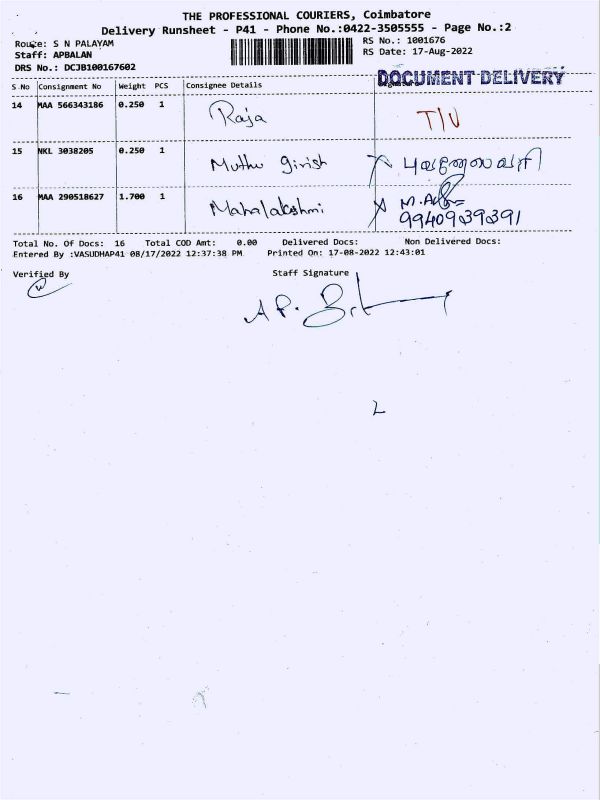 THE PROFESSIONAL COURIERS, Coimbatore
Delivery Runsheet - P41 - Phone No.:0422-3505555 - Page No.:2
Route: S N PALAYAM
RS No.: 1001676
Staff: APBALAN
RS Date: 17-Aug-2022
DRS No.: DCJB100167602
DOCUMENT DELIVERY
S No Consignment No Weight PCS Consignee Details
14 MAA 566343186 0.250 1 Raja T/V
15 NKL 3038205 0.250 1 Muthu girish புவனேஸ்வரி
16 MAA 290518627 1.700 1 Mahalakshmi M.
9940939391
Total No. Of Docs: 16 Total COD Amt: 0.00 Delivered Docs: Non Delivered Docs:
Entered By :VASUDHAP41 08/17/2022 12:37:38 PM Printed On: 17-08-2022 12:43:01
Verified By Staff Signature
A P.